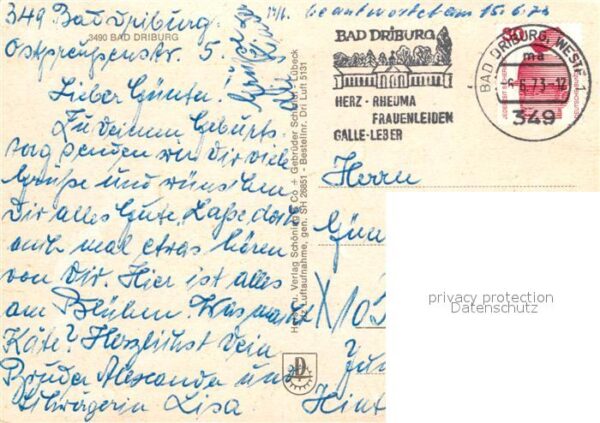 349 Bad Driburg.
3490 BAD DRIBURG
Ostpreußenstr. 5.
beantwortet am 15.6.73
Lieber Günter!
Zu deinem Geburts
tag senden wir dir viele
Grüße und wünschen
Dir alles Gute. Lasse doch
auch mal etwas hören
von Dir. Hier ist alles
am Blühen. Was macht
Käte? Herzlichst dein
Bruder Alexander und
Schwägerin Lisa.
Verlag Schöning & Co + Gebrüder Schmidt - Lübeck
Luftaufnahme, gen. SH 26851 - Bestellnr. Dri Luft 5131
BAD DRIBURG
HERZ - RHEUMA
FRAUENLEIDEN
GALLE-LEBER
BAD DRIBURG, WESTF. 1
ma
-6.6.73-12
349
Herrn
Gün
privacy protection
Datenschutz